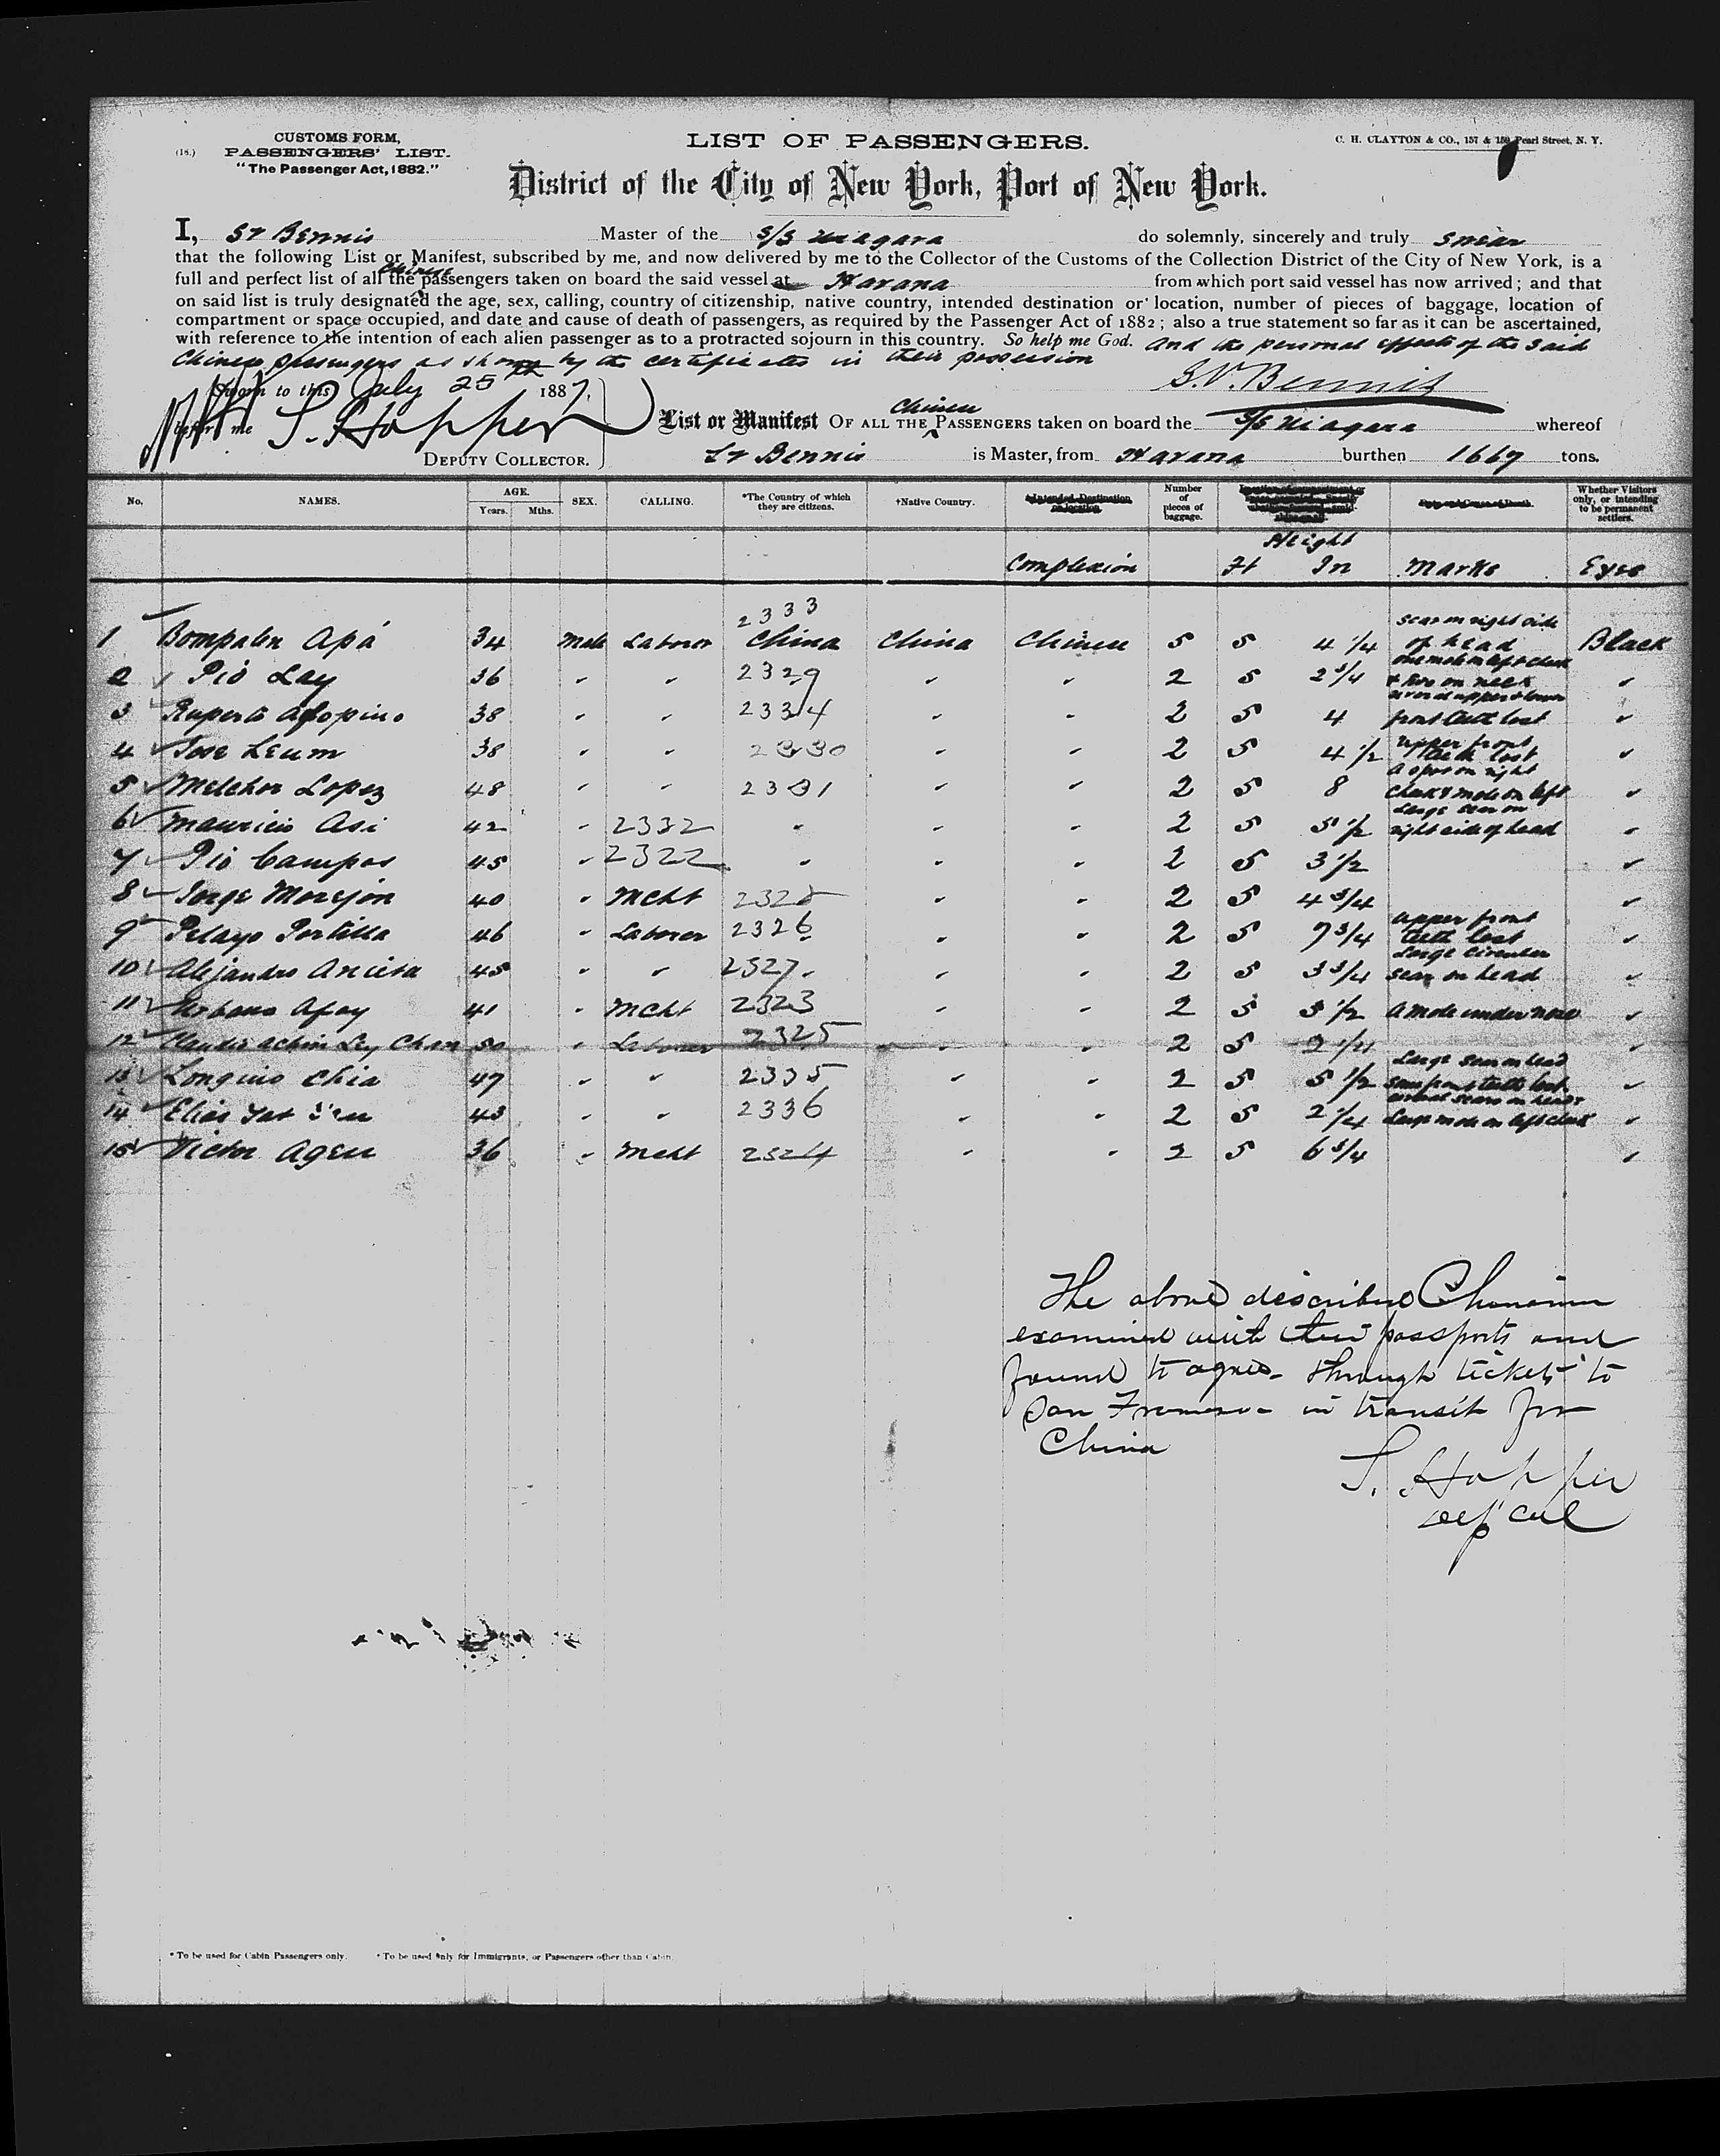 CUSTOMS FORM,
(18.) PASSENGERS' LIST.
"The Passenger Act, 1882."
LIST OF PASSENGERS.
C. H. CLAYTON & CO., 157 & 159 Pearl Street, N. Y.
District of the City of New York, Port of New York.
I, SV Bennis Master of the S/S Niagara do solemnly, sincerely and truly swear
that the following List or Manifest, subscribed by me, and now delivered by me to the Collector of the Customs of the Collection District of the City of New York, is a
full and perfect list of all the Chinese passengers taken on board the said vessel at Havana from which port said vessel has now arrived; and that
on said list is truly designated the age, sex, calling, country of citizenship, native country, intended destination or location, number of pieces of baggage, location of
compartment or space occupied, and date and cause of death of passengers, as required by the Passenger Act of 1882; also a true statement so far as it can be ascertained,
with reference to the intention of each alien passenger as to a protracted sojourn in this country. So help me God. And the personal effects of the said
Chinese passengers as shown by the certificates in their possession
Sworn to this July 25th 1887,
S.V. Bennis
before me S. Hopper
DEPUTY COLLECTOR.
List or Manifest OF ALL THE Chinese PASSENGERS taken on board the S/S Niagara whereof
SV Bennis is Master, from Havana burthen 1667 tons.
No. NAMES. AGE. Years. Mths. SEX. CALLING. *The Country of which they are citizens. †Native Country. †Intended Destination or location. Number of pieces of baggage. Date and Cause of Death. Whether Visitors only, or intending to be permanent settlers.
Complexion Height Ft In Marks Eyes
1 Bompalen Apá 34 Male Laborer 2333 China China Chinese 5 5 4 1/4 scar on right side of head Black
2 Pio Lay 36 " " 2329 " " 2 5 2 3/4 one mole on left cheek & two on neck "
3 Ruperto 38 " " 2334 " " 2 5 4 several upper & lower front teeth lost "
4 Jose Leum 38 " " 2330 " " 2 5 4 1/2 upper front teeth lost "
5 Melchor Lopez 48 " " 2331 " " 2 5 8 A spot on right cheek & mole on left "
6 Mauricio Asi 42 " 2332 " " " 2 5 5 1/2 Large scar on right side of head "
7 Pio Campos 45 " 2322 " " " 2 5 3 1/2 "
8 Jorge Morejon 40 " Mcht 2328 " " 2 5 4 3/4 "
9 Pelayo Portilla 46 " Laborer 2326 " " 2 5 7 3/4 upper front teeth lost "
10 Alejandro 45 " " 2327 " " 2 5 3 3/4 Large circular scar on head "
11 Urbano Afoy 41 " Mcht 2323 " " 2 5 3 1/2 A mole under nose "
12 Claudio Achin Ley Chan 50 " Laborer 2325 " " 2 5 2 1/4 "
13 Longino Chia 47 " " 2335 " " 2 5 5 1/2 Large scar on head some front teeth lost "
14 Elias 43 " " 2336 " " 2 5 2 1/4 several scars on head & Large mole on left cheek "
15 Victor Ageu 36 " Mcht 2324 " " 2 5 6 3/4 "
The above described Chinamen
examined with their passports and
found to agree. Through tickets to
San Francisco in transit for
China
S. Hopper
Dep Col
* To be used for Cabin Passengers only. † To be used only for Immigrants, or Passengers other than Cabin.